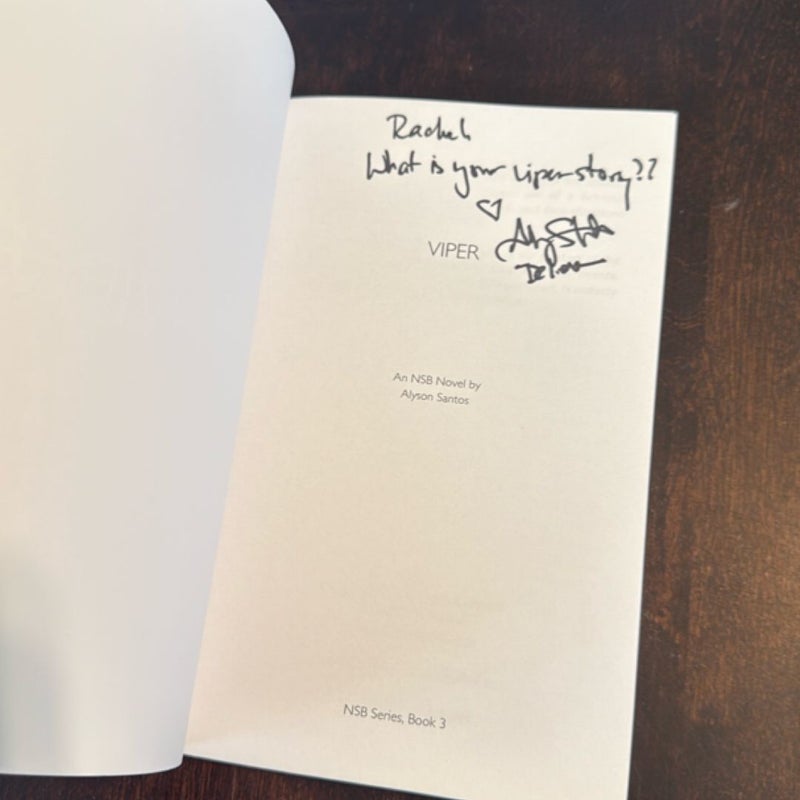 Rachel
What is your viper story??
VIPER
An NSB Novel by
Alyson Santos
NSB Series, Book 3